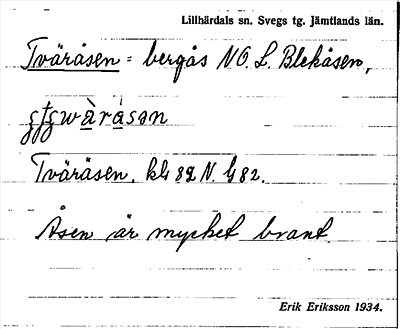 Lillhärdals sn. Svegs tg. Jämtlands län.
Tväråsen = bergås NO. L. Blekåsen,
Tväråsen. kbl 82 N. G 82.
Åsen är mycket brant.
Erik Eriksson 1934.